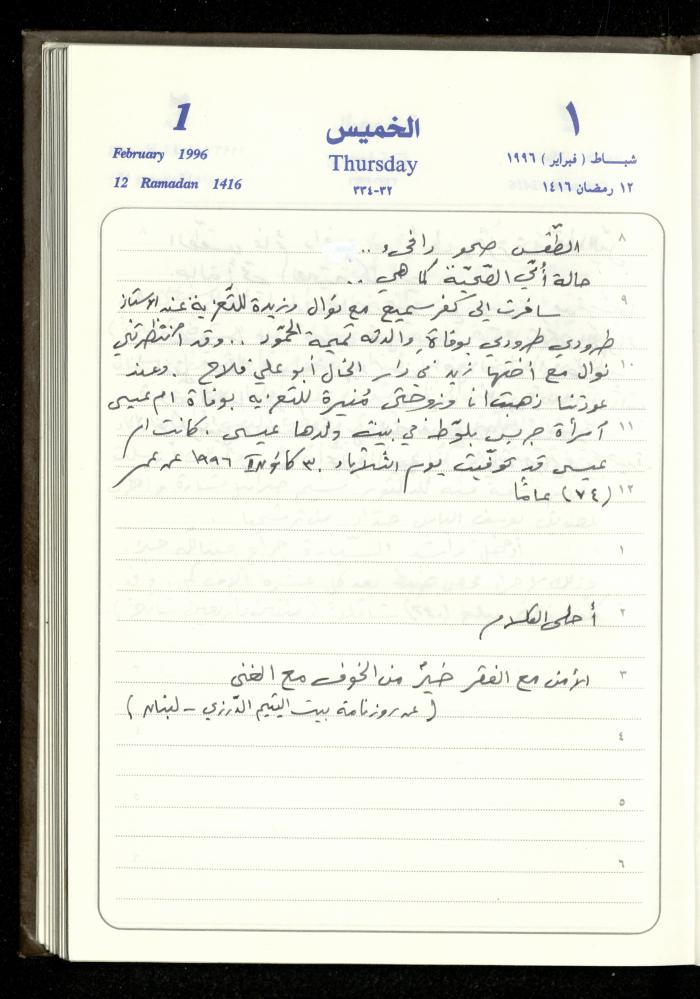 1
الخميس
١
February 1996
Thursday
شبـــاط ( فبراير ) ١٩٩٦
12 Ramadan 1416
٣٢-٣٣٤
١٢ رمضان ١٤١٦
٨ الطّقس صحو دافىء ..
حالة أُمّي الصّحيّة كما هي ..
٩ سافرت إلى كفر سميع مع نوال وزيدة للتّعزية عند الاستاذ
طرودي طرودي بوفاة والدته تميمة الحمّود .. وقد انتظرتني
١٠ نوال مع أختها في دار الخال أبو علي فلاح . وعند
عودتنا ذهبت انا وزوجتي مُنيرة للتعزية بوفاة ام عيسى
١١ امرأة جريس بلّوط في بيت ولدها عيسى . كانت ام
عيسى قد توفّيت يوم الثلاثاء ٣٠ كانون II ١٩٩٦ عن عمر
١٢ (٧٤) عامًا
١
٢ أحلى الكلام
٣ الأمن مع الفقر خيرٌ من الخوف مع الغنى
( عن روزنامة بيت اليتيم الدّرزي - لبنان )
٤
٥
٦